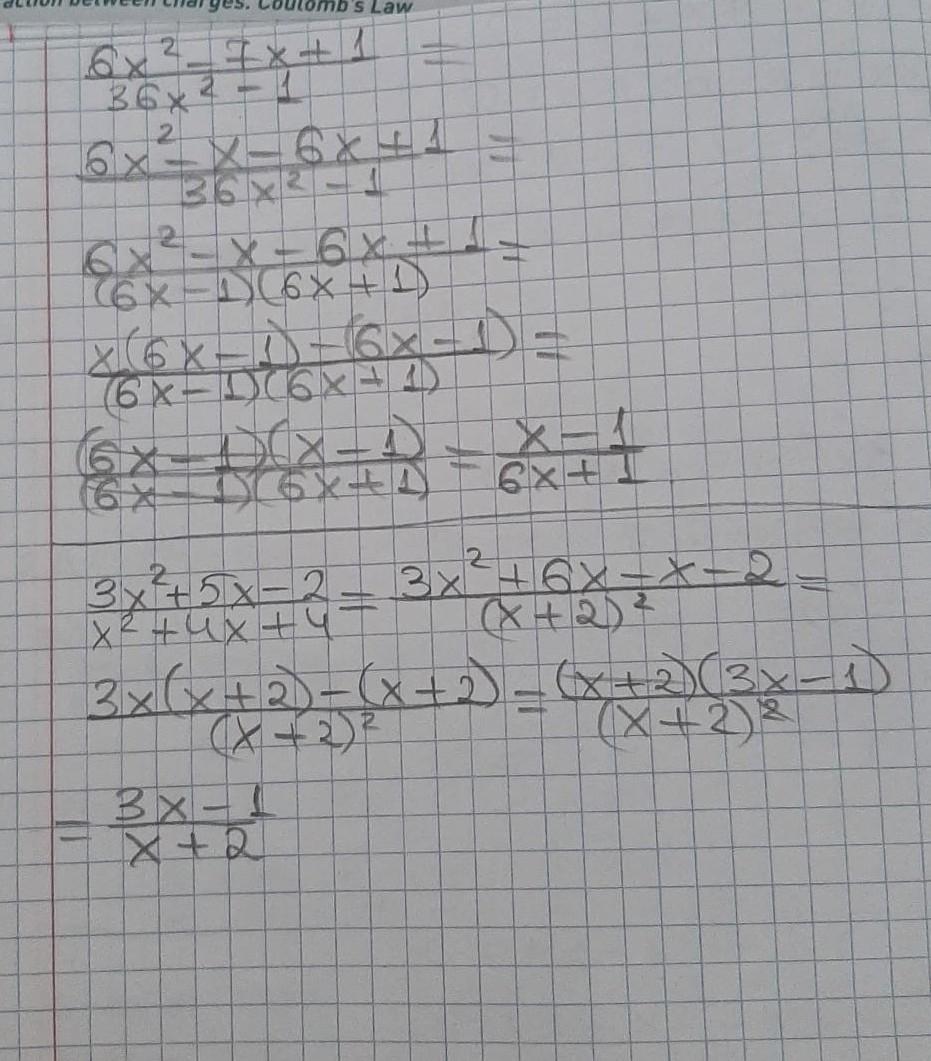 action between charges. Coulomb's Law
(6x² - 7x + 1)/(36x² - 1) =
(6x² - x - 6x + 1)/(36x² - 1) =
(6x² - x - 6x + 1)/((6x - 1)(6x + 1)) =
(x(6x - 1) - (6x - 1))/((6x - 1)(6x + 1)) =
((6x - 1)(x - 1))/((6x - 1)(6x + 1)) = (x - 1)/(6x + 1)
(3x² + 5x - 2)/(x² + 4x + 4) = (3x² + 6x - x - 2)/((x + 2)²) =
(3x(x + 2) - (x + 2))/((x + 2)²) = ((x + 2)(3x - 1))/((x + 2)²)
= (3x - 1)/(x + 2)